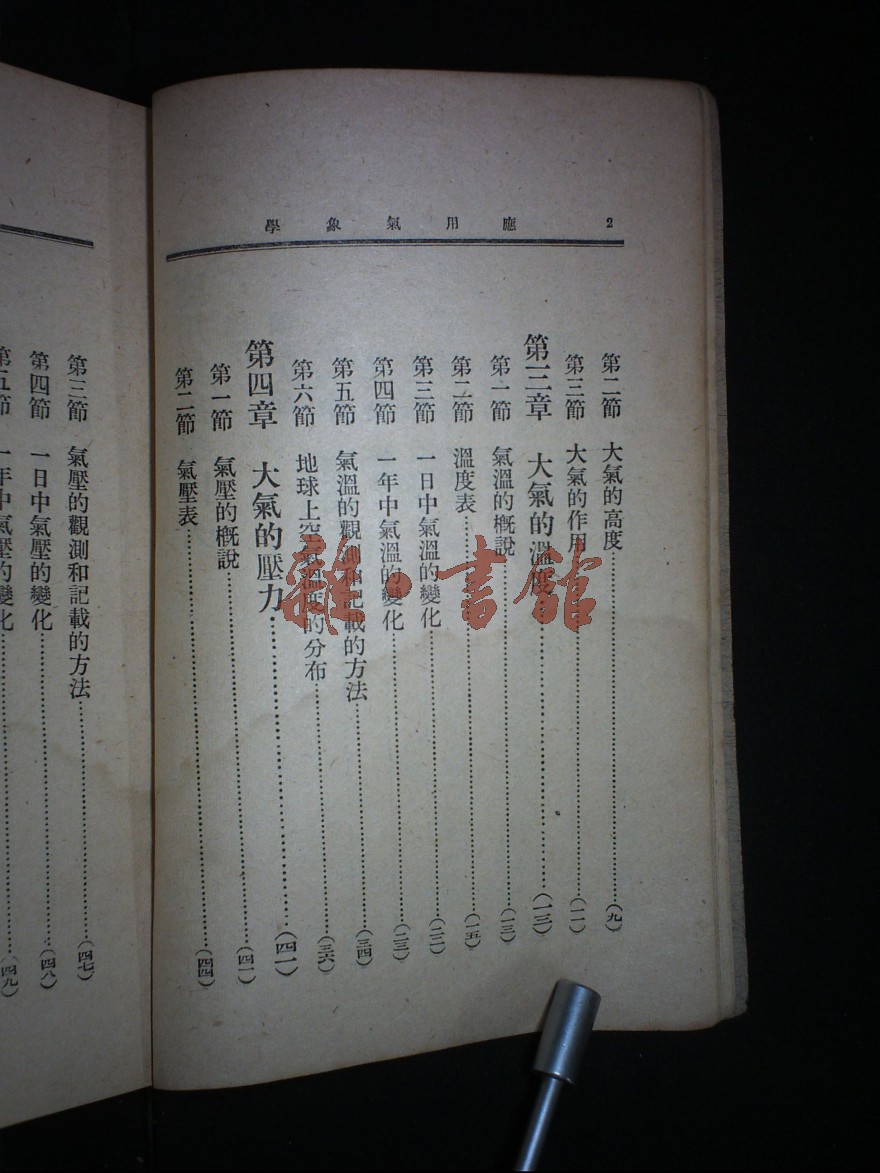 2 應用氣象學
第二節 大氣的高度……(九)
第三節 大氣的作用……(一一)
第三章 大氣的溫度……(一三)
第一節 氣溫的槪說……(一三)
第二節 溫度表……(一五)
第三節 一日中氣溫的變化……(二二)
第四節 一年中氣溫的變化……(二三)
第五節 氣溫的觀測和記載的方法……(三四)
第六節 地球上空氣溫度的分布……(三六)
第四章 大氣的壓力……(四一)
第一節 氣壓的槪說……(四一)
第二節 氣壓表……(四四)
第三節 氣壓的觀測和記載的方法……(四七)
第四節 一日中氣壓的變化……(四八)
第五節 一年中氣壓的變化……(四九)
雜·書館